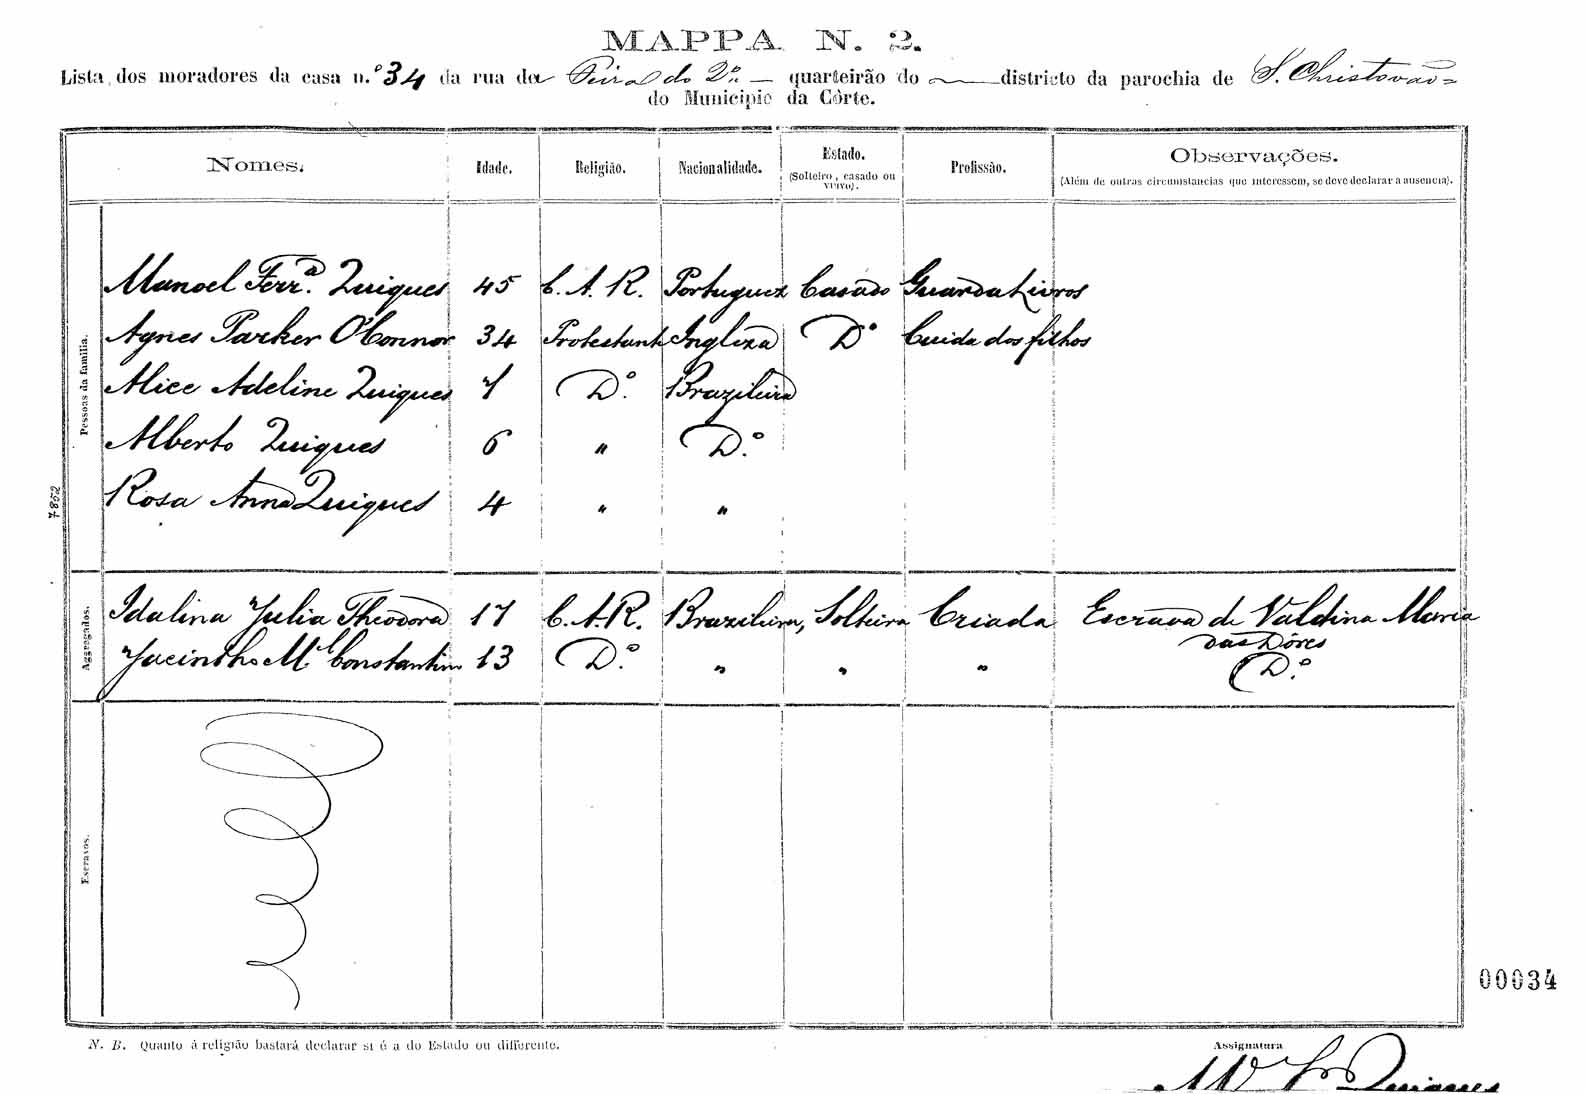 MAPPA N. 2.
Lista dos moradores da casa n.º 34 da rua do Piral do 2º — quarteirão do — districto da parochia de S. Christovão
do Municipio da Côrte.
Nomes. Idade. Religião. Nacionalidade. Estado. (Solteiro, casado ou viuvo). Profissão. Observações. (Além de outras circumstancias que interessem, se deve declarar a ausencia).
Pessoas da familia.
Manoel Ferr.ª Quiques 45 C. A. R. Portuguez Casado Guarda Livros
Agnes Parker O'Connor 34 Protestant Ingleza Dº Cuida dos filhos
Alice Adeline Quiques 7 Dº. Brazileira
Alberto Quiques 6 " Dº.
Rosa Anna Quiques 4 " "
7852
Aggregados.
Idalina Julia Theodora 17 C. A. R. Brazileira, Solteira Criada Escrava de Valdina Maria
das Dôres
Jacintho M.l Constantino 13 Dº. " " " Dº.
Escravos.
00034
N. B. Quanto á religião bastará declarar si é a do Estado ou differente.
Assignatura
Quiques